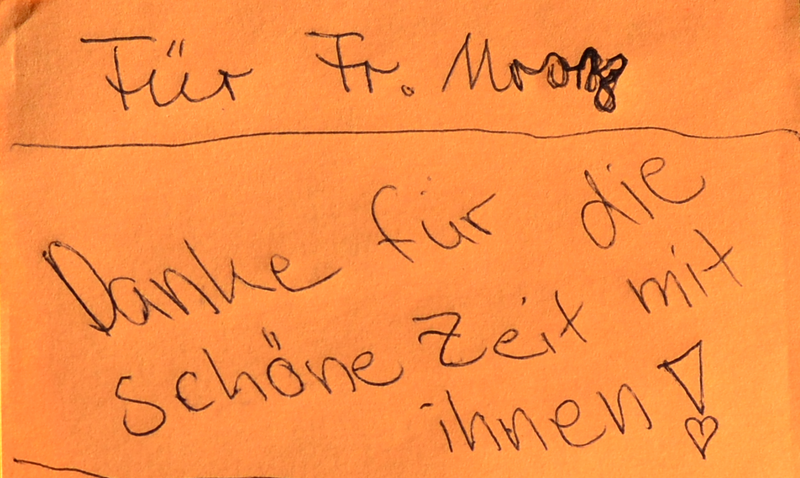 Für Fr.
Danke für die
schöne Zeit mit
ihnen!